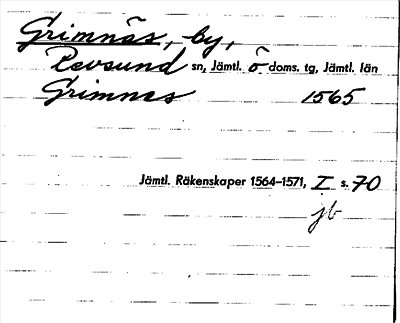 Grimnäs, by,
Revsund sn, Jämtl. ö doms. tg, Jämtl. län
Grimnes 1565
Jämtl. Räkenskaper 1564–1571, I s. 70
jb